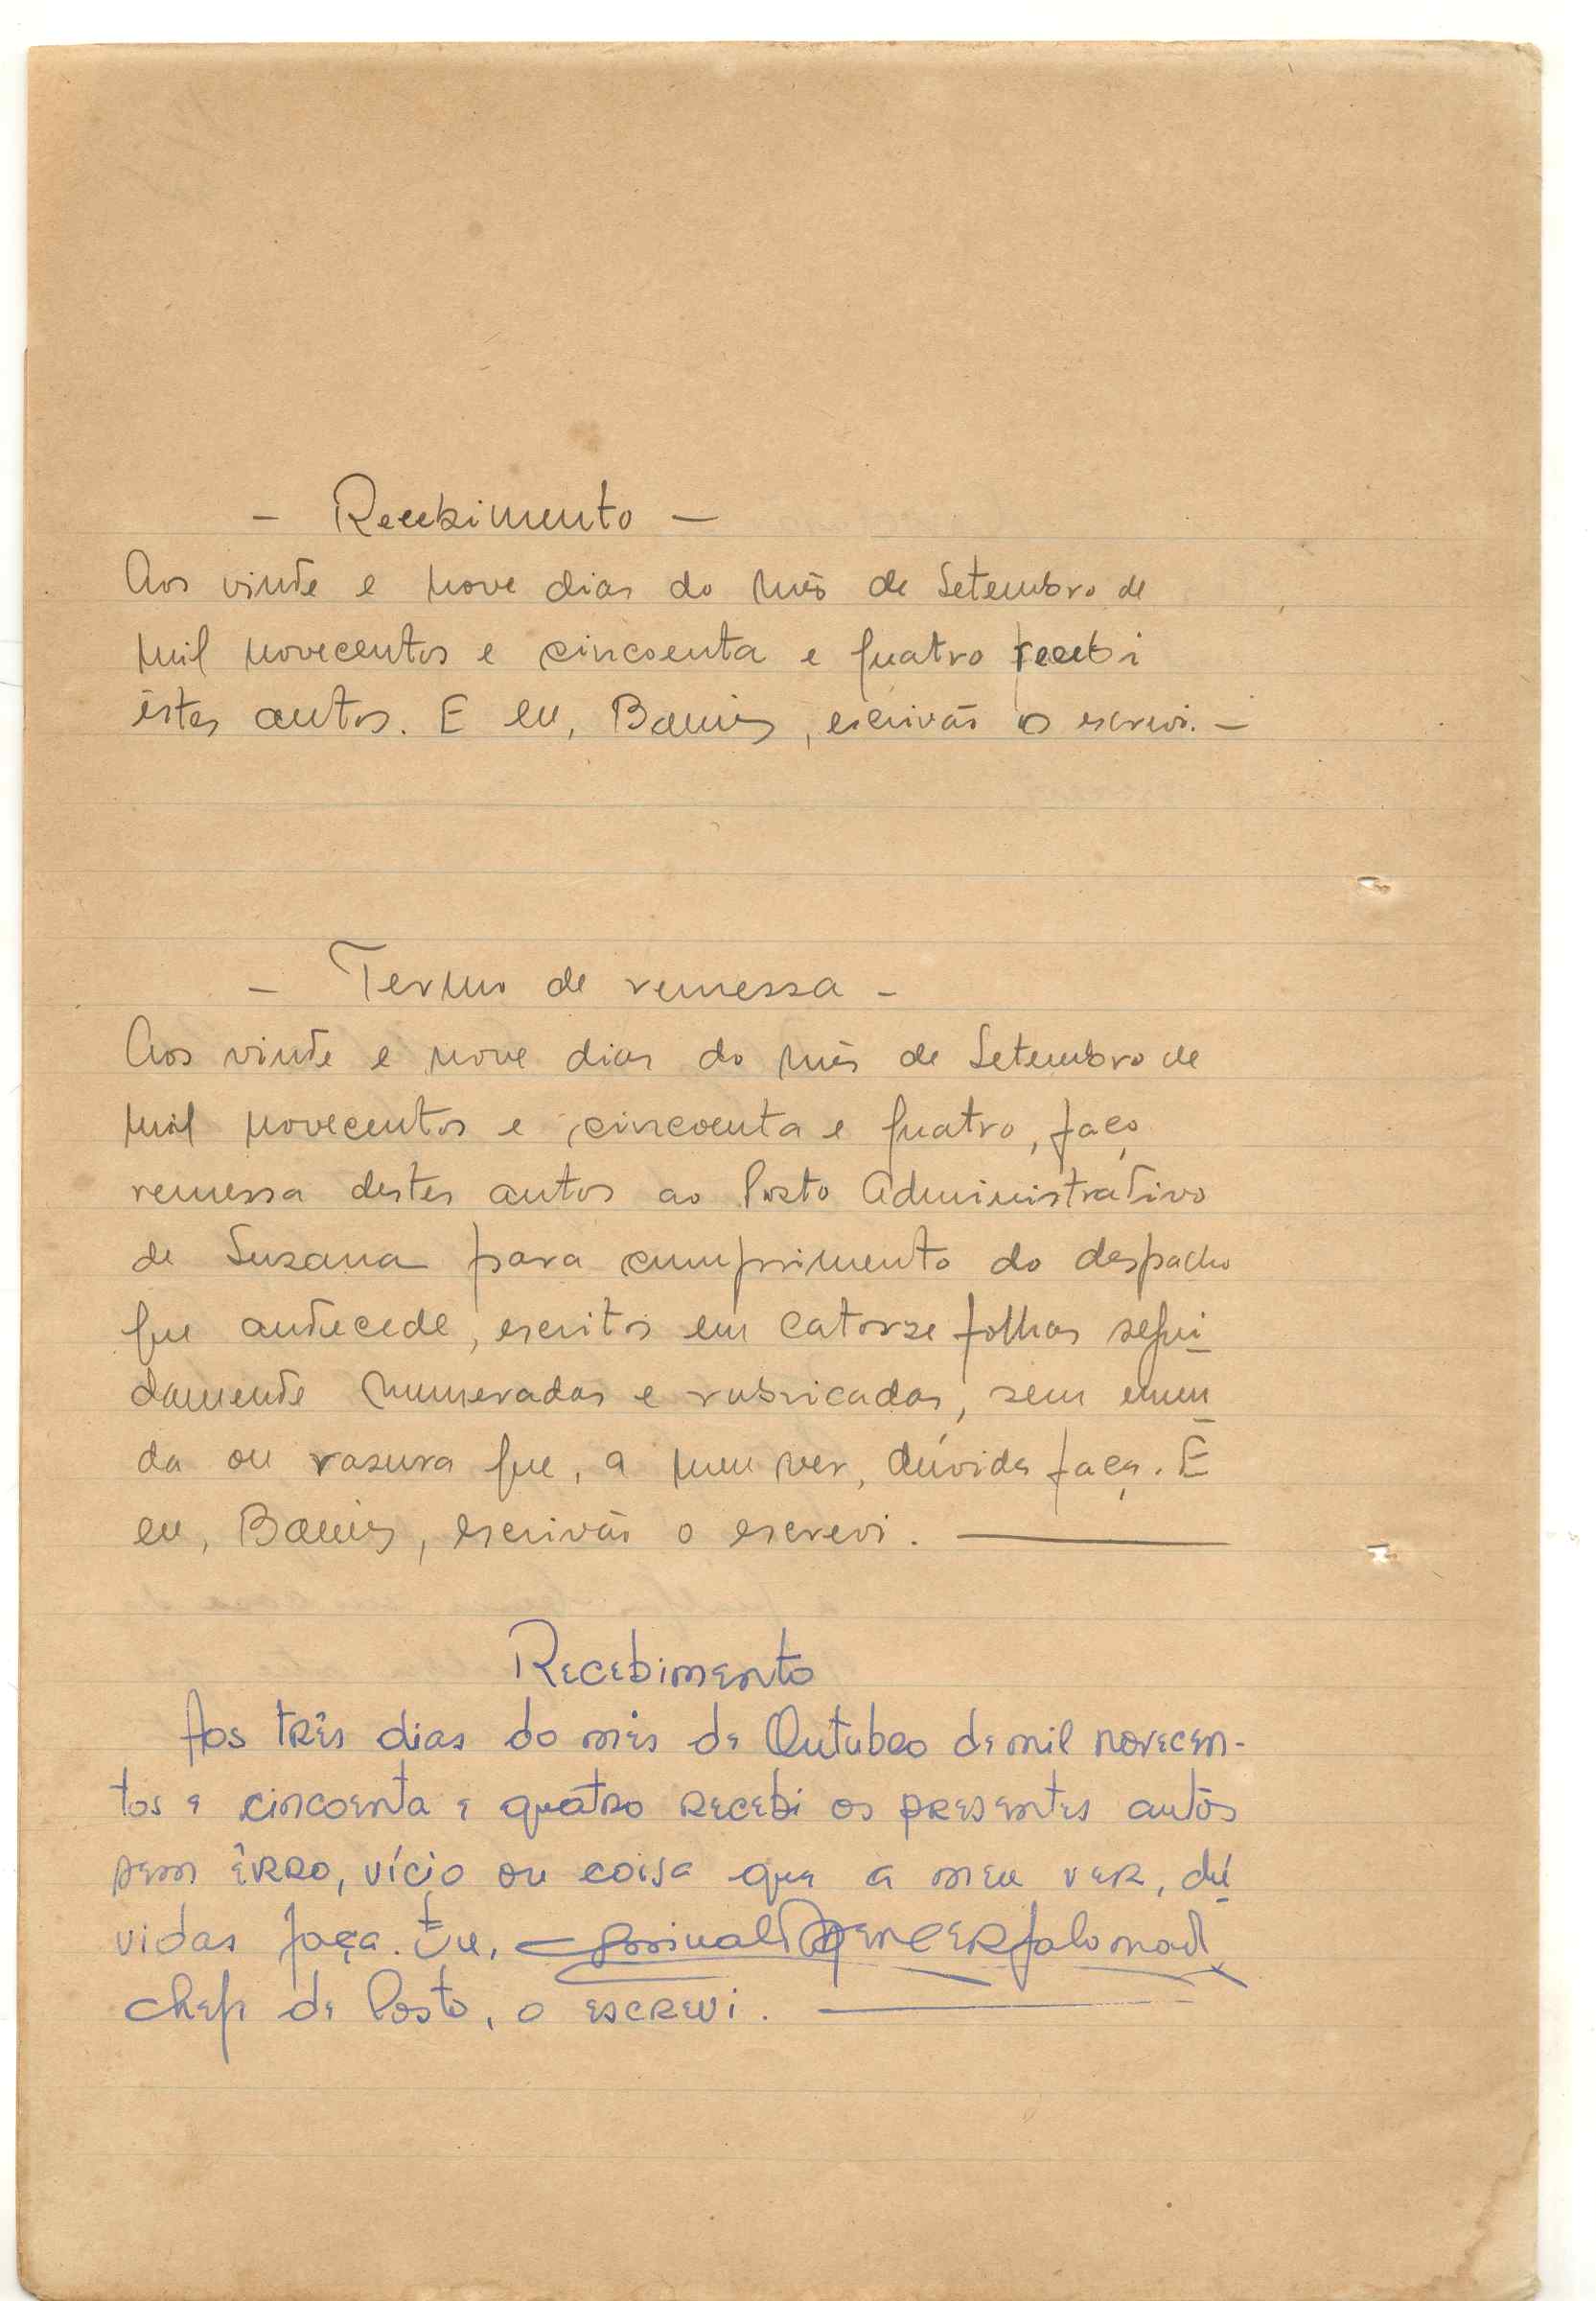 - Recebimento -
Aos vinte e nove dias do mês de Setembro de
mil novecentos e cincoenta e quatro recebi
êstes autos. E eu, , escrivão o escrevi. -
- Termo de remessa -
Aos vinte e nove dias do mês de Setembro de
mil novecentos e cincoenta e quatro, faço
remessa destes autos ao Posto Administrativo
de Suzana para cumprimento do despacho
que antecede, escritos em catorze folhas segui-
damente numeradas e rubricadas, sem emen-
da ou rasura que, a meu ver, dúvida faça. E
eu, , escrivão o escrevi.
Recebimento
Aos três dias do mês de Outubro de mil novecen-
tos e cincoenta e quatro recebi os presentes autos
sem êrro, vício ou coisa que a meu ver, dú-
vidas faça. Eu,
chefe de Posto, o escrevi.